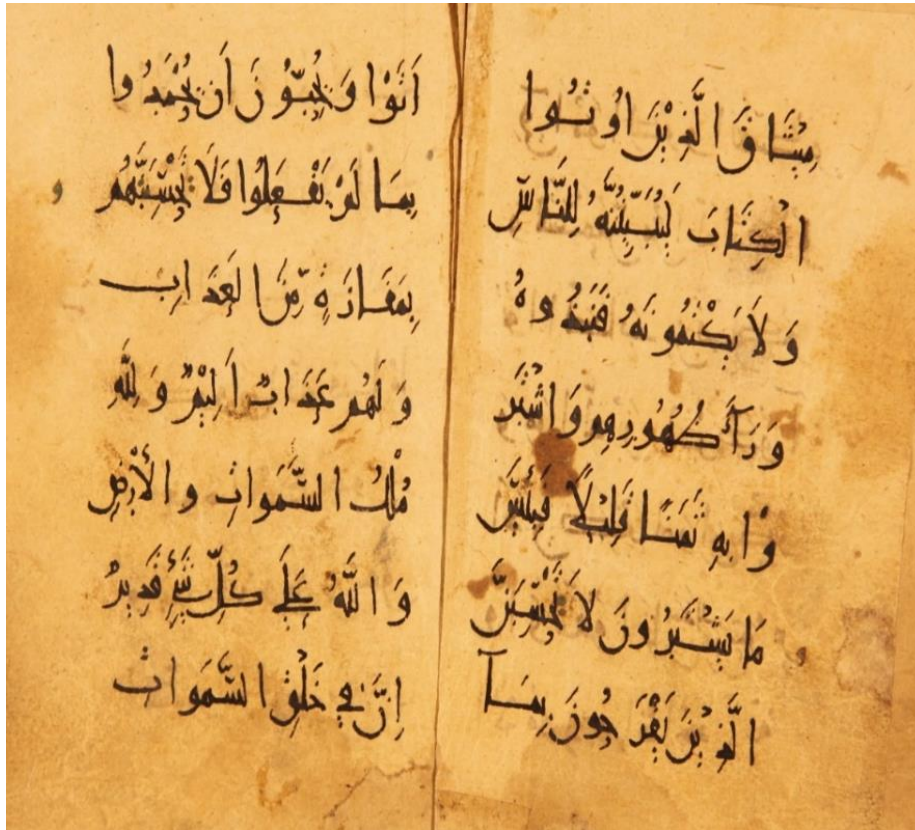 مِيْثَاقَ الَّذِيْنَ اُوتُوا
الْكِتَابَ لَيُبَيِّنُنَّهُ لِلنَّاسِ
وَلَا يَكْتُمُونَهُ فَنَبَذُوهُ
وَرَآءَ ظُهُورِهِم وَاشْتَرَ
وْا بِهِ ثَمَنًا قَلِيْلًا فَبِئْسَ
مَا يَشْتَرُونَ لَا تَحْسَبَنَّ
الَّذِيْنَ يَفْرَحُونَ بِمَآ
اَتَوْا وَيُحِبُّونَ اَن يُحْمَدُوا
بِمَا لَمْ يَفْعَلُوا فَلَا تَحْسَبَنَّهُم
بِمَفَازَةٍ مِّنَ العَذَابِ
وَلَهُم عَذَابٌ اَلِيْمٌ وَلِلَّهِ
مُلْكُ السَّمَوَاتِ والْأَرْضِ
وَاللَّهُ عَلَى كُلِّ شَيْءٍ قَدِيرٌ
اِنَّ فِي خَلْقِ السَّمَوَاتِ